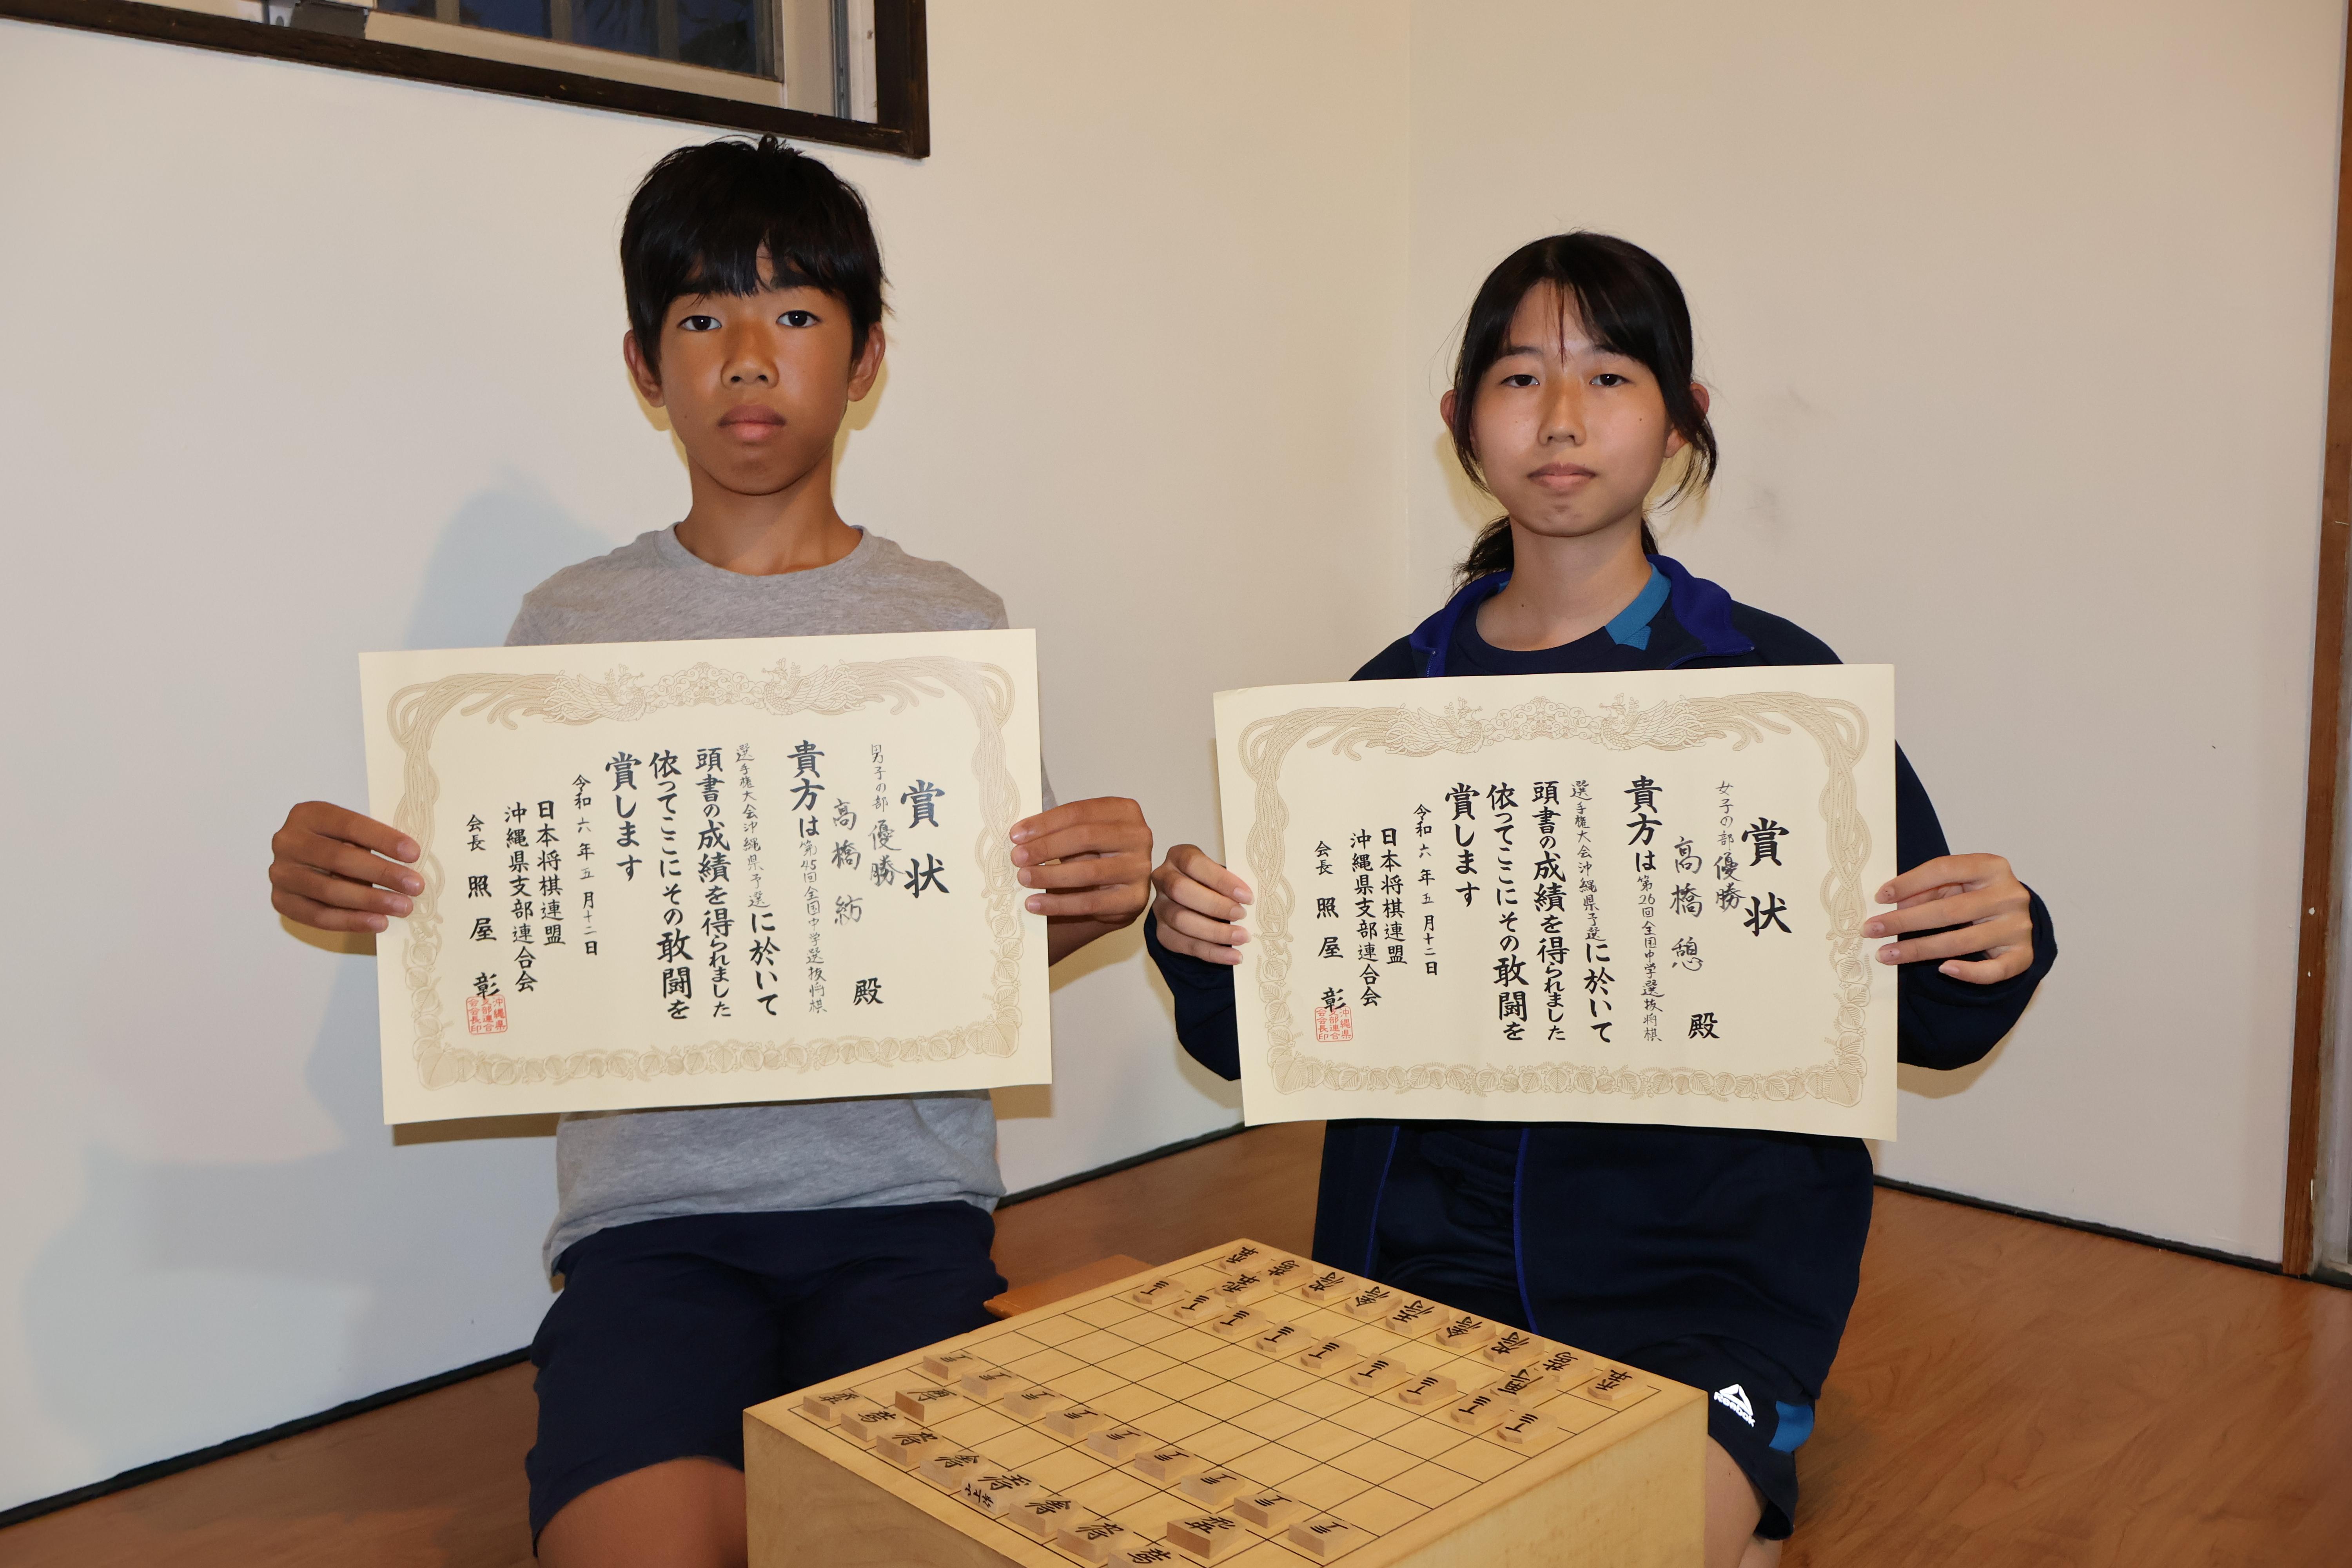 賞状
男子の部 優勝
高橋 紡 殿
貴方は第45回全国中学選抜将棋
選手権大会沖縄県予選に於いて
頭書の成績を得られました
依ってここにその敢闘を
賞します
令和六年五月十二日
日本将棋連盟
沖縄県支部連合会
会長 照屋 彰
賞状
女子の部 優勝
高橋 憩 殿
貴方は第26回全国中学選抜将棋
選手権大会沖縄県予選に於いて
頭書の成績を得られました
依ってここにその敢闘を
賞します
令和六年五月十二日
日本将棋連盟
沖縄県支部連合会
会長 照屋 彰
Reebok